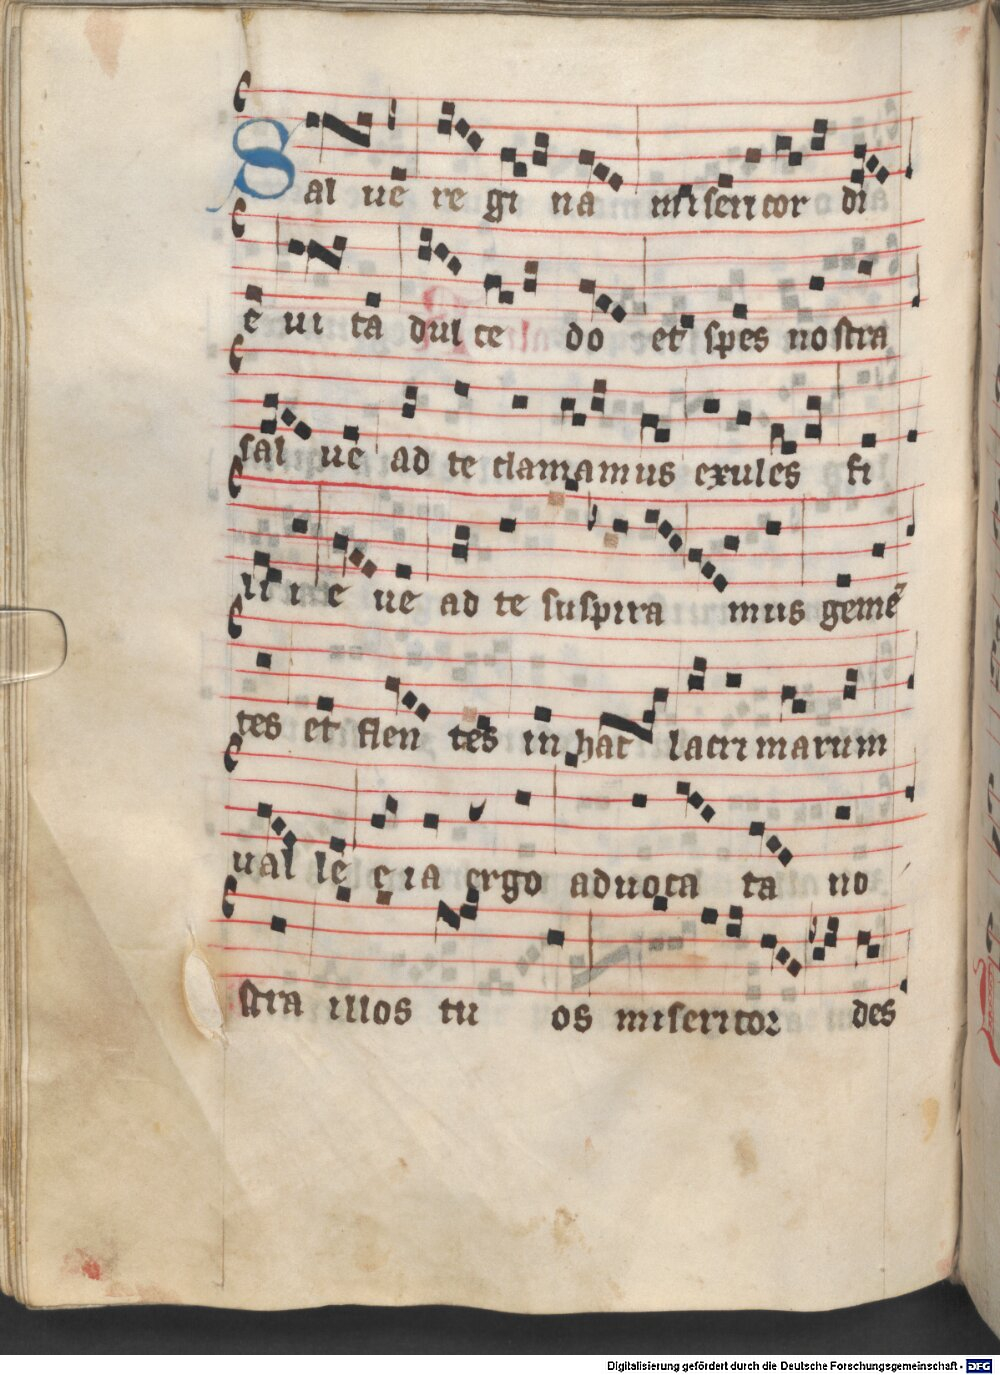 Sal ue re gi na misericor di
e ui ta dul ce do et spes nostra
sal ue ad te clamamus exules fi
lii e ue ad te suspira mus gemē
tes et flen tes in hac lacrimarum
ual le e ia ergo aduoca ta no
stra illos tu os misericor des
Digitalisierung gefördert durch die Deutsche Forschungsgemeinschaft - DFG